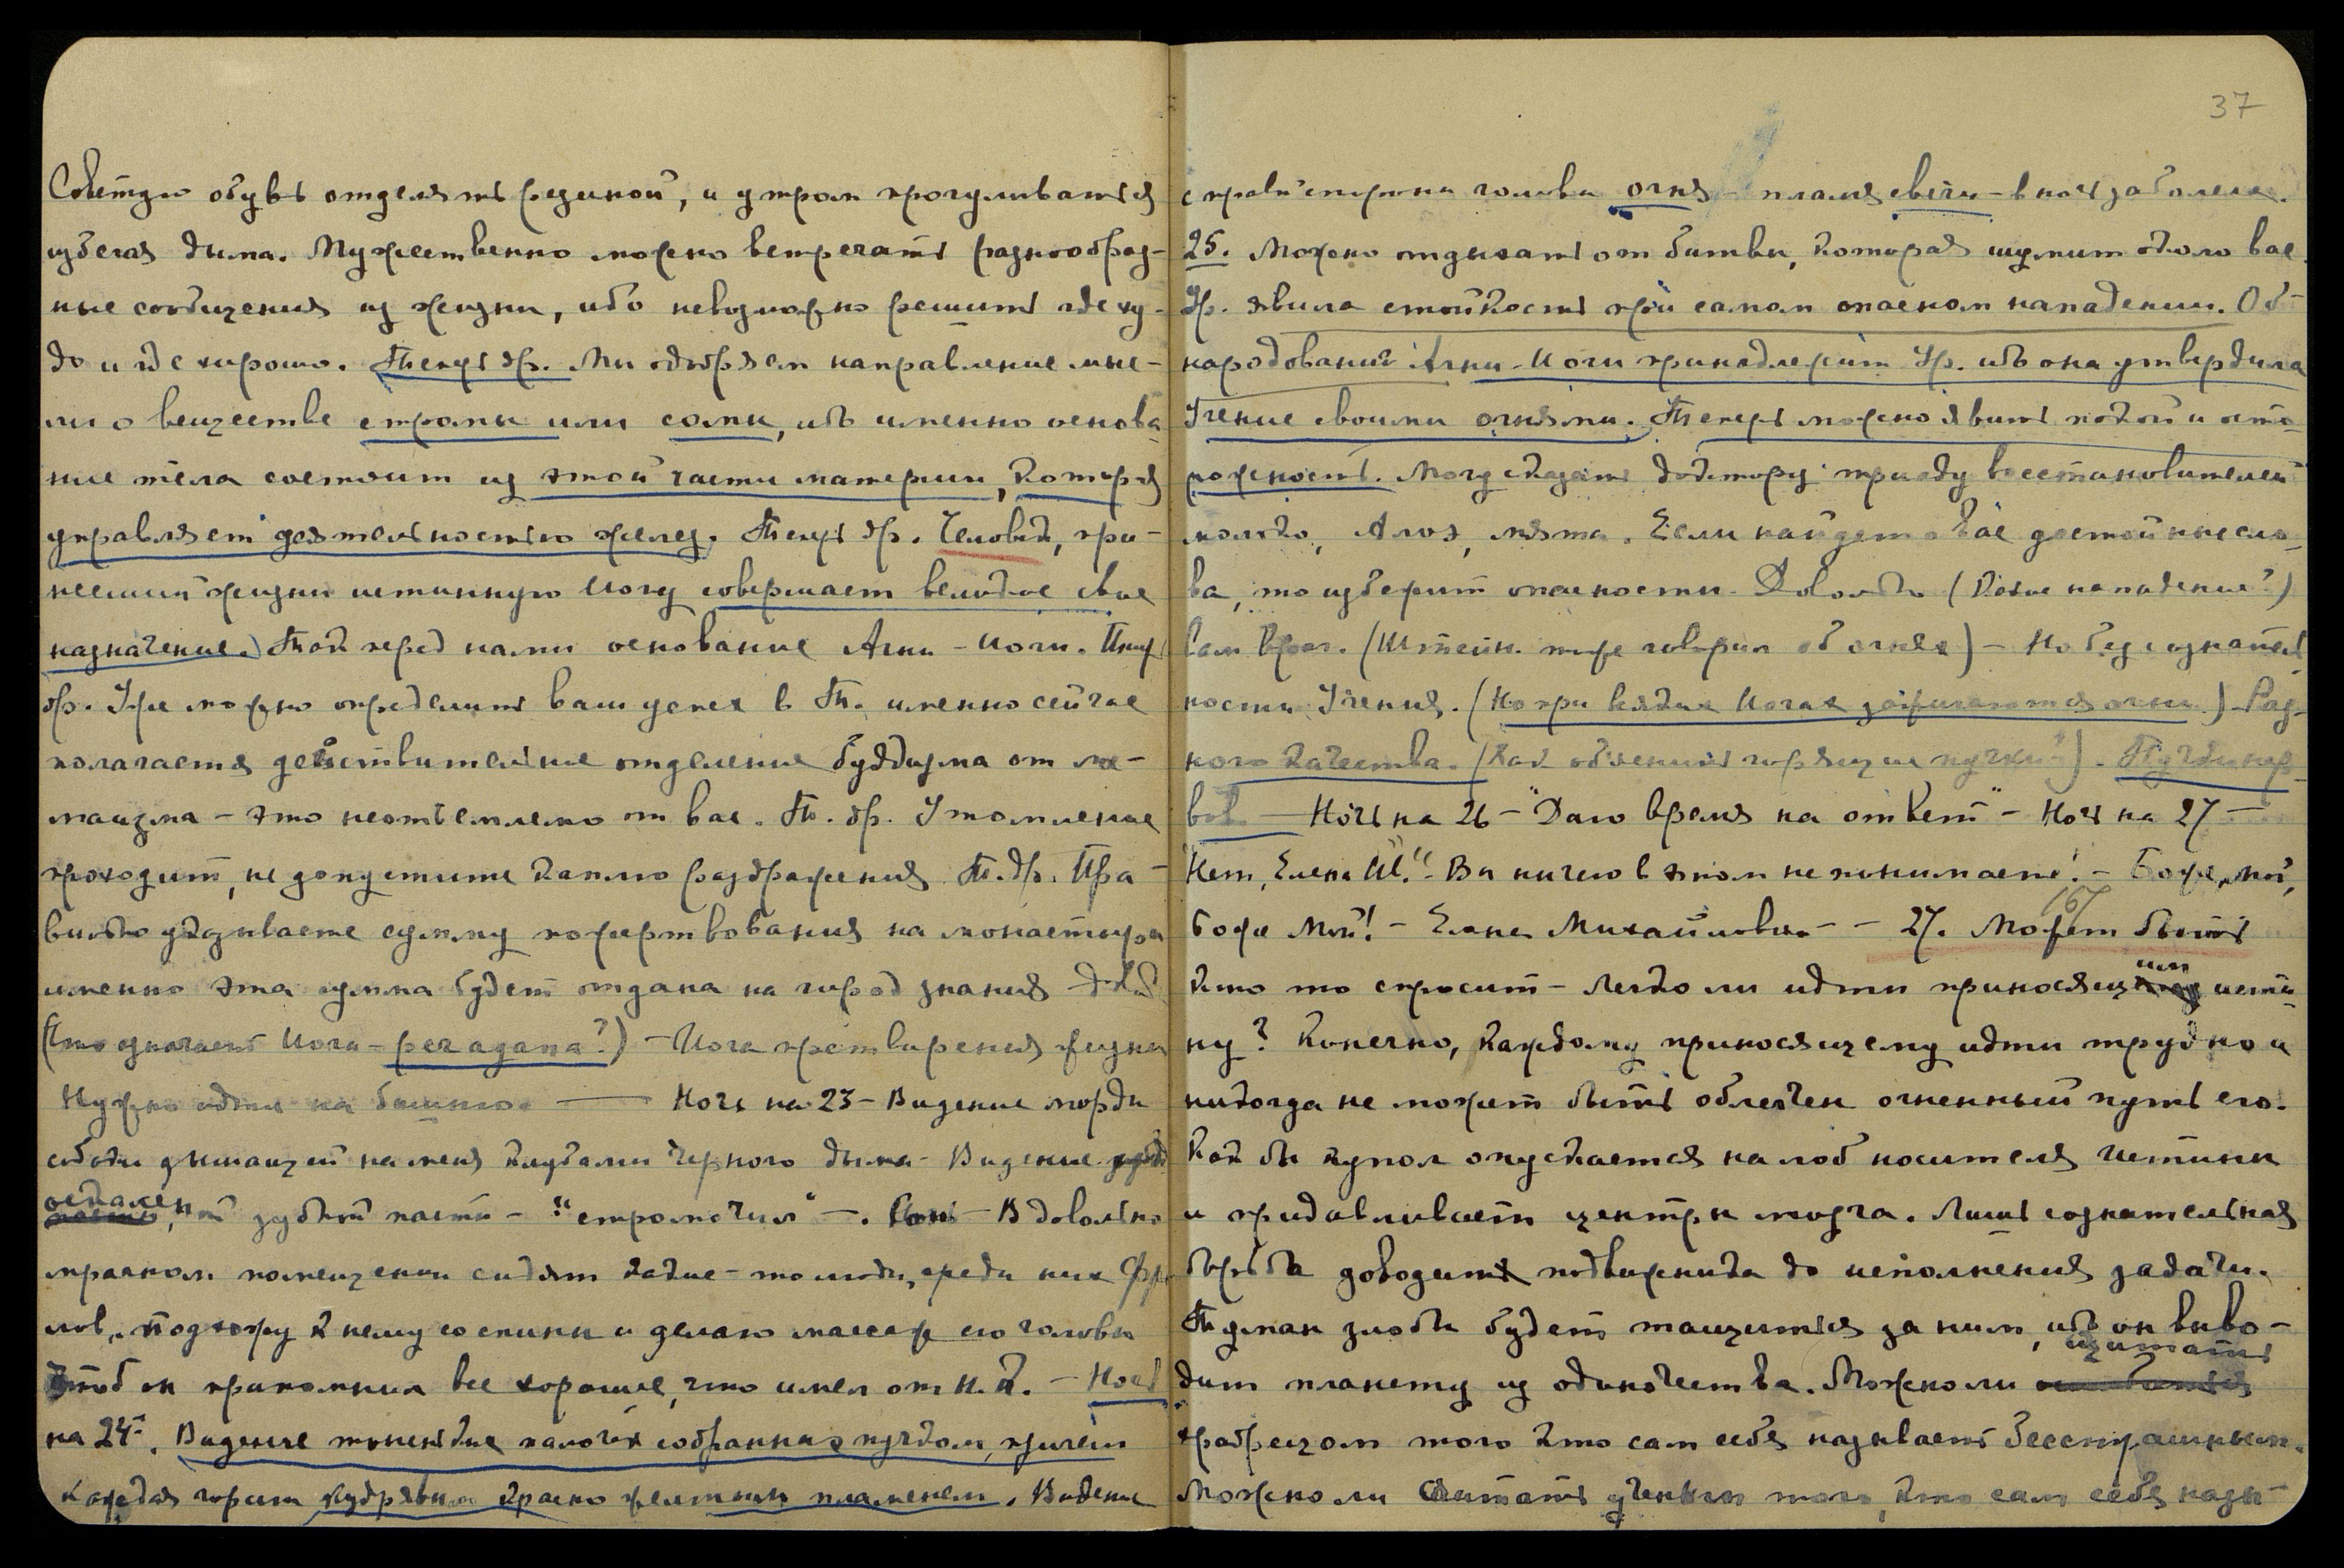 Советую обувь отделять резиной, и утром прогуливаться
избегая дыма. Мужественно можно встречать разнообраз-
ные сообщения из жизни, ибо невозможно решить где ху-
до и где хорошо. Теперь др. Мы одобряем направление мыс-
ли о веществе стромы или сомы, ибо именно основа
ние тела состоит из этой части материи, которая
управляет деятельностью желез. Теперь др. Человек, при-
несший жизни истинную Йогу совершает великое свое
назначение. Так перед нами основание Агни-Йоги. Теперь
др. Уже можно определить ваш успех в Т. именно сейчас
полагается действительное отделение буддизма от ла-
маизма - это неотъемлемо от вас. Т. др. Утомление
проходит, не допустите каплю раздражения. Т. др. Пра-
вильно указываете сумму пожертвования на монастыри
именно эта сумма будет отдана на город знания
(Что означает Йога - ?) - Йога претворения жизни
Нужно идти на башню. — Ночь на 23 - Видение морды
собаки дышащей на меня клубами черного дыма - Видение
оскален, ой зубаст пасти - "стромотил" -. - В довольно
мрачном помещении сидят какие-то люди, среди них Фр
лов, подхожу к нему со спины и делаю массаж его головы
чтоб он припомнил все хорошее, что имел от Н.К. - Ночь
на 24-. Видение тоненьких палочек собранных пучком, причем
каждая горит кудрявым красно желтым пламенем. Видение
37
с правой стороны головы огня - пламя свечи - в ночь заболела.
25. Можно отдыхать от битвы, которая шумит около вас.
Ур. явила стойкость при самом опасном нападении. Об-
народование Агни-Йоги принадлежит Ур. ибо она утвердила
Учение своими огнями. Теперь можно явить покой и осто-
рожность. Могу сказать доктору триаду восстановителей
молоко, Алоэ, мята. Если найдет о вас достойные сло-
ва, то избежит опасности. Довольно (Какое нападение?)
Вам враг. (Штейн. тоже говорил об огнях) - Но без сознатель
ности Учения. (Но при всяких Йогах зажигаются огни) - Раз-
ного качества. (Как объяснить горящие пучки?). - Пучки нер-
вов — Ночь на 26 - "Даю время на ответ" - Ночь на 27 -
Нет, Елена Ив." - Вы ничего в этом не понимаете! - Боже, мой,
боже мой! - Елена Михайловна - - 27. Может быть
167
кто то спросит - легко ли идти приносящим исти-
ну? Конечно, каждому приносящему идти трудно и
никогда не может быть облегчен огненный путь его.
Как бы купол опускается на лоб носителя истины
и придавливает центры мозга. Лишь сознательная
борьба доводит подвижника до исполнения задачи.
Туман злобы будет тащиться за ним, ибо он выво-
дит планету из одиночества. Можно ли считать
храбрецом того кто сам себя называет бесстрашным.
Можно ли считать ученым того, кто сам себя назы-